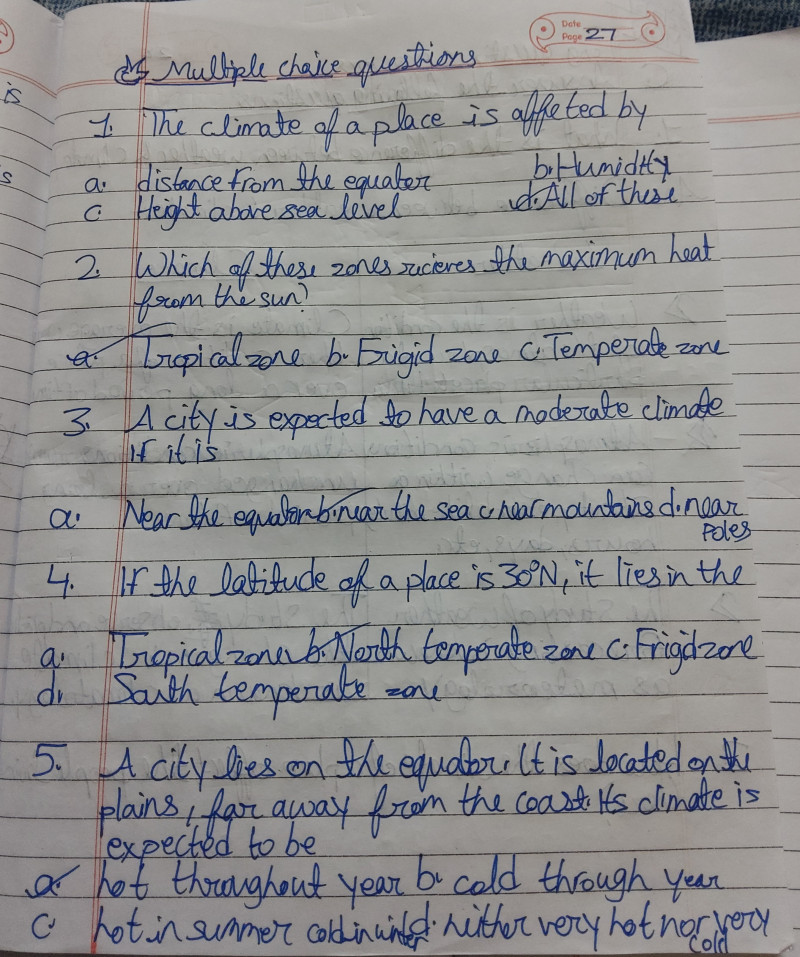 Date
Page 27
Multiple choice questions
is
1. The climate of a place is affeted by
s
a. distance from the equator b. Humidity
c. Height above sea level d. All of these
2. Which of these zones recieves the maximum heat
from the sun?
a. Tropical zone b. Frigid zone c. Temperate zone
3. A city is expected to have a moderate climate
If it is
a. Near the equator b. near the sea c near mountains d. near
Poles
4. If the latitude of a place is 30°N, it lies in the
a. Tropical zone b. North temperate zone c. Frigid zone
d. South temperate zone
5. A city lies on the equator. It is located on the
plains, far away from the coast. Its climate is
expected to be
a. hot throughout year b. cold through year
c. hot in summer cold in winter d. neither very hot nor very
cold